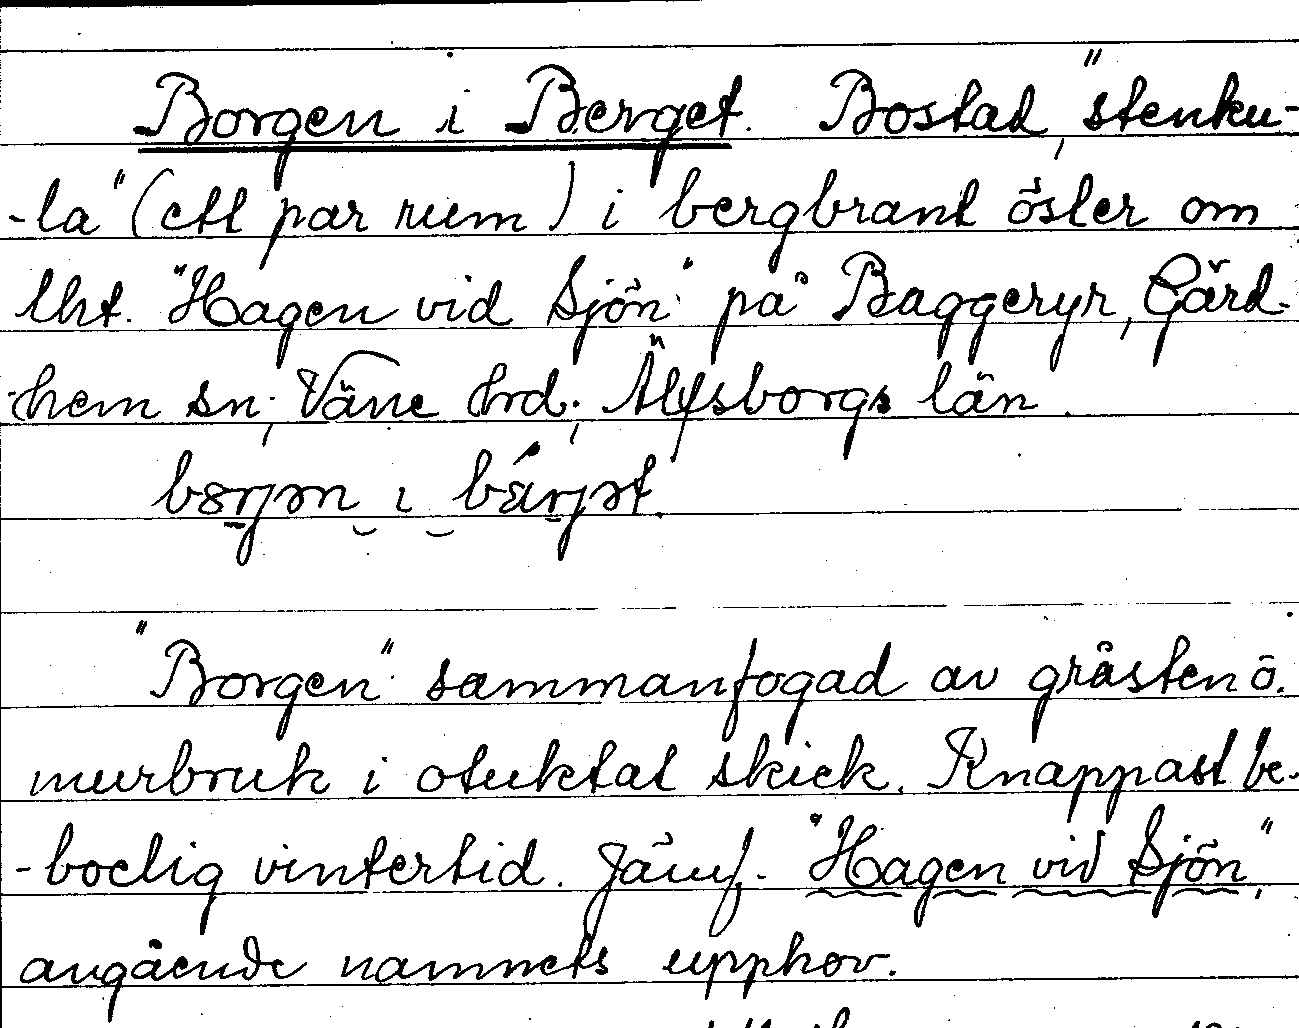 Borgen i Berget. Bostad, "stenku-
-la" (ett par rum) i bergbrant öster om
lht. "Hagen vid Sjön" på Baggeryr, Gärd-
-hem sn, Väne hrd, Älfsborgs län.
i
"Borgen" sammanfogad av gråsten o.
murbruk i otuktat skick. Knappast be-
-boelig vintertid. Jämf. "Hagen vid Sjön",
angående namnets upphov.